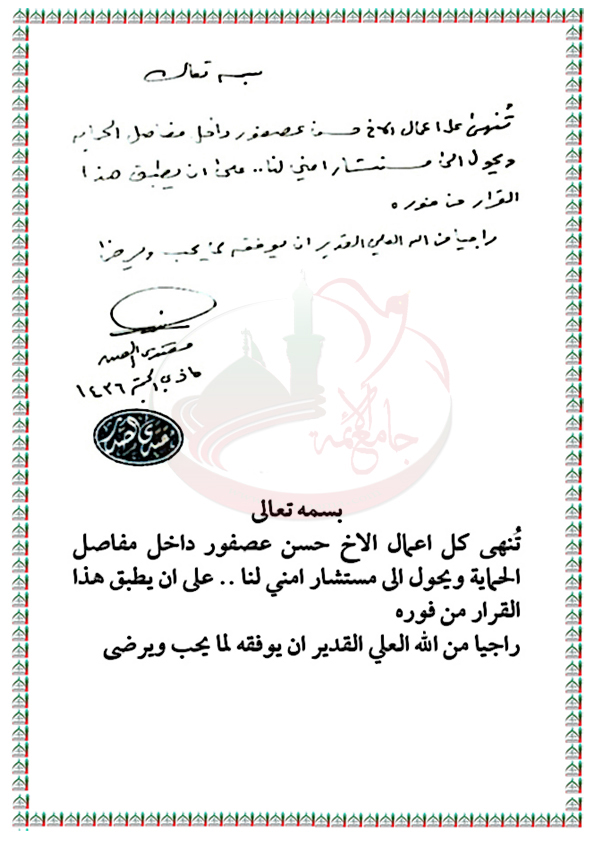 بسمه تعالى
تُنهى كل اعمال الاخ حسن عصفور داخل مفاصل الحماية
ويحول الى مستشار امني لنا .. على ان يطبق هذا
القرار من فوره
راجيا من الله العلي القدير ان يوفقه لما يحب ويرضى
مقتدى الصدر
ذي الحجة ١٤٣٦
مقتدى الصدر
جامع الائمة
بسمه تعالى
تُنهى كل اعمال الاخ حسن عصفور داخل مفاصل
الحماية ويحول الى مستشار امني لنا .. على ان يطبق هذا
القرار من فوره
راجيا من الله العلي القدير ان يوفقه لما يحب ويرضى